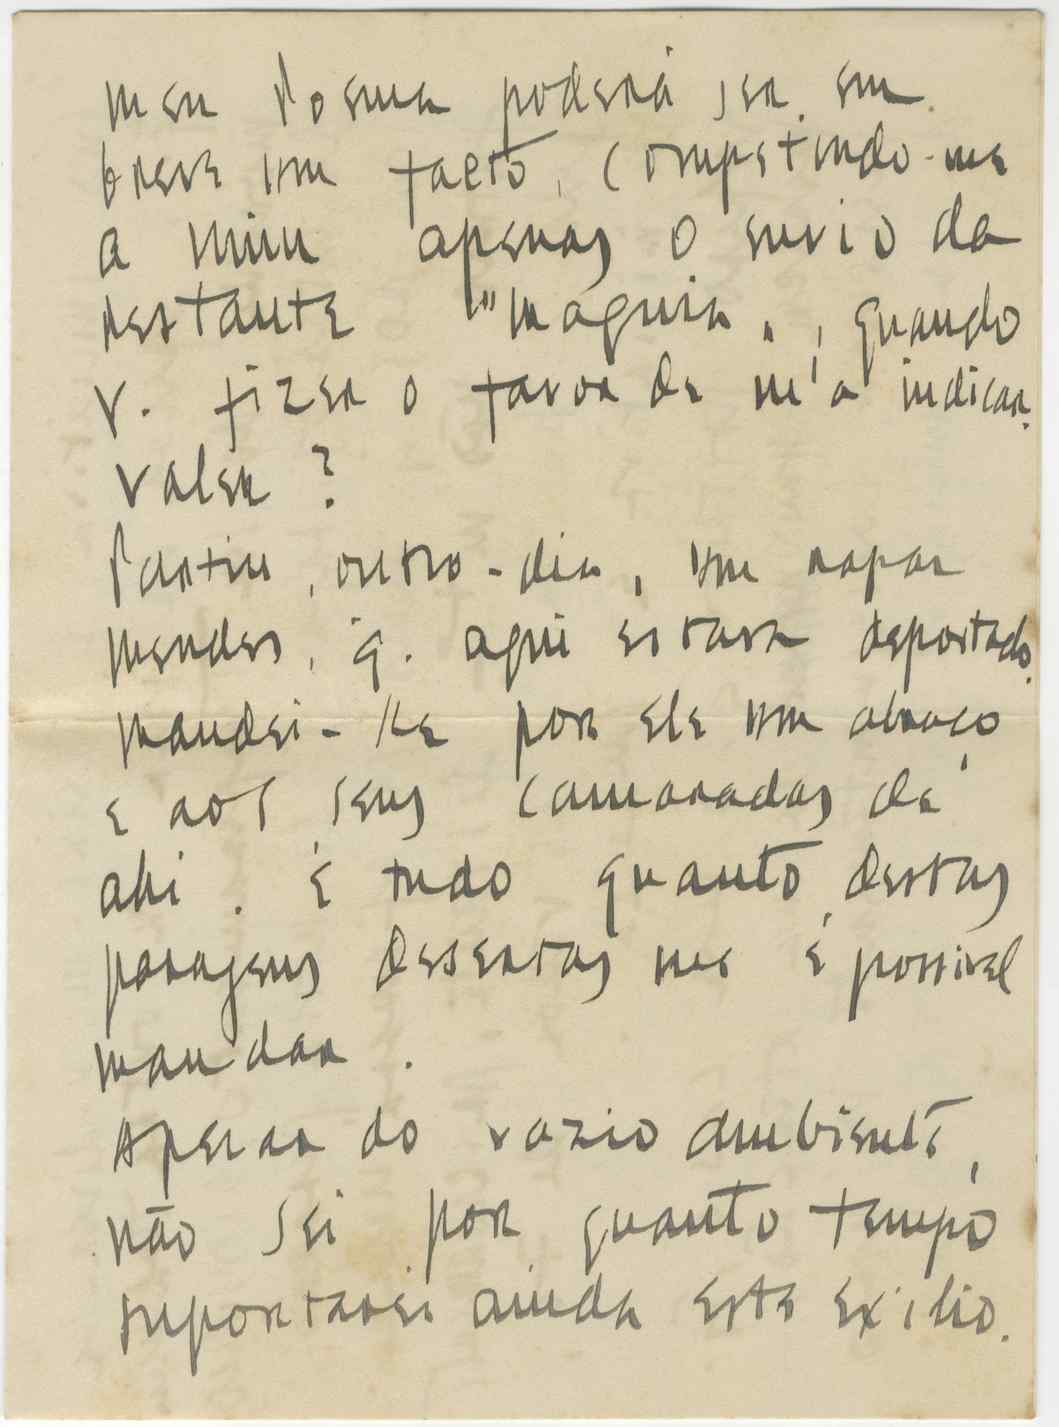 meu Poema poderá ser em
breve um facto, competindo-me
a mim apenas o envio da
restante "maquia", quando
V. fizer o favor de m'a indicar.
Valeu?
Partiu, outro-dia, um rapaz
Mendes, q. aqui estava deportado.
Mandei-lhe por ele um abraço
e aos seus camaradas de
ahi. É tudo quanto, destas
paragens desertas me é possivel
mandar.
Apezar do vazio ambiente,
não sei por quanto tempo
suportarei ainda este exilio.